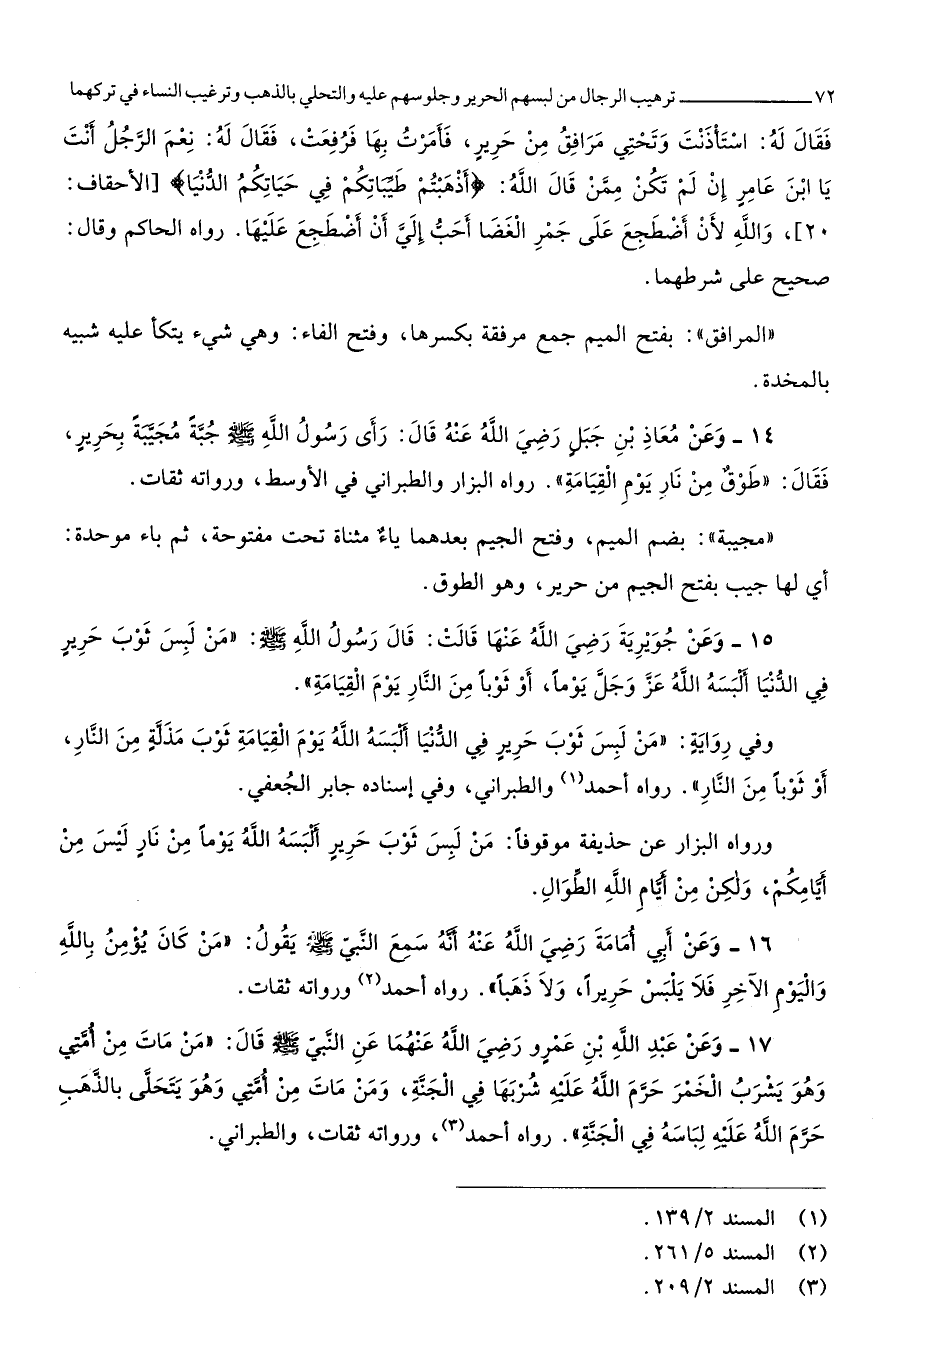 ٧٢ ــــــــ ترهيب الرجال من لبسهم الحرير وجلوسهم عليه والتحلي بالذهب وترغيب النساء في تركهما
فَقَالَ لَهُ: اسْتَأْذَنْتَ وَتَحْتِي مَرَافِقُ مِنْ حَرِيرٍ، فَأَمَرْتُ بِهَا فَرُفِعَتْ، فَقَالَ لَهُ: نِعْمَ الرَّجُلُ أَنْتَ
يَا ابْنَ عَامِرٍ إِنْ لَمْ تَكُنْ مِمَّنْ قَالَ اللَّهُ: ﴿أَذْهَبْتُمْ طَيِّبَاتِكُمْ فِي حَيَاتِكُمُ الدُّنْيَا﴾ [الأحقاف:
٢٠]، وَاللَّهِ لأَنْ أَضْطَجِعَ عَلَى جَمْرِ الْغَضَا أَحَبُّ إِلَيَّ أَنْ أَضْطَجِعَ عَلَيْهَا. رواه الحاكم وقال:
صحيح على شرطهما.
«المرافق»: بفتح الميم جمع مرفقة بكسرها، وفتح الفاء: وهي شيء يتكأ عليه شبيه
بالمخدة.
١٤ ـ وَعَنْ مُعَاذِ بْنِ جَبَلٍ رَضِيَ اللَّهُ عَنْهُ قَالَ: رَأَى رَسُولُ اللَّهِ ﷺ جُبَّةً مُجَيَّبَةً بِحَرِيرٍ،
فَقَالَ: «طَوْقٌ مِنْ نَارٍ يَوْمِ الْقِيَامَةِ». رواه البزار والطبراني في الأوسط، ورواته ثقات.
«مجيبة»: بضم الميم، وفتح الجيم بعدهما ياءٌ مثناة تحت مفتوحة، ثم باء موحدة:
أي لها جيب بفتح الجيم من حرير، وهو الطوق.
١٥ ـ وَعَنْ جُوَيْرِيَةَ رَضِيَ اللَّهُ عَنْهَا قَالَتْ: قَالَ رَسُولُ اللَّهِ ﷺ: «مَنْ لَبِسَ ثَوْبَ حَرِيرٍ
فِي الدُّنْيَا أَلْبَسَهُ اللَّهُ عَزَّ وَجَلَّ يَوْماً، أَوْ ثَوْباً مِنَ النَّارِ يَوْمَ الْقِيَامَةِ».
وفي رِوَايَةٍ: «مَنْ لَبِسَ ثَوْبَ حَرِيرٍ فِي الدُّنْيَا أَلْبَسَهُ اللَّهُ يَوْمَ الْقِيَامَةِ ثَوْبَ مَذَلَّةٍ مِنَ النَّارِ،
أَوْ ثَوْباً مِنَ النَّارِ». رواه أحمد(١) والطبراني، وفي إسناده جابر الجُعفي.
ورواه البزار عن حذيفة موقوفاً: مَنْ لَبِسَ ثَوْبَ حَرِيرٍ أَلْبَسَهُ اللَّهُ يَوْماً مِنْ نَارٍ لَيْسَ مِنْ
أَيَّامِكُمْ، وَلٰكِنْ مِنْ أَيَّامِ اللَّهِ الطِّوَالِ.
١٦ ـ وَعَنْ أَبِي أُمَامَةَ رَضِيَ اللَّهُ عَنْهُ أَنَّهُ سَمِعَ النَّبِيّ ﷺ يَقُولُ: «مَنْ كَانَ يُؤْمِنُ بِاللَّهِ
وَالْيَوْمِ الآخِرِ فَلاَ يَلْبَسْ حَرِيراً، وَلاَ ذَهَباً». رواه أحمد(٢) ورواته ثقات.
١٧ ـ وَعَنْ عَبْدِ اللَّهِ بْنِ عَمْرٍو رَضِيَ اللَّهُ عَنْهُمَا عَنِ النَّبِيِّ ﷺ قَالَ: «مَنْ مَاتَ مِنْ أُمَّتِي
وَهُوَ يَشْرَبُ الْخَمْرَ حَرَّمَ اللَّهُ عَلَيْهِ شُرْبَهَا فِي الْجَنَّةِ، وَمَنْ مَاتَ مِنْ أُمَّتِي وَهُوَ يَتَحَلَّى بالذَّهَبِ
حَرَّمَ اللَّهُ عَلَيْهِ لِبَاسَهُ فِي الْجَنَّةِ». رواه أحمد(٣)، ورواته ثقات، والطبراني.
(١) المسند ٢/ ١٣٩.
(٢) المسند ٥/ ٢٦١.
(٣) المسند ٢/ ٢٠٩.